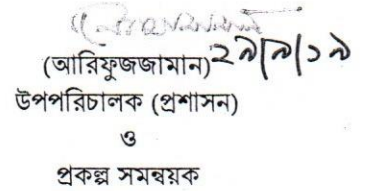 (আরিফুজজামান) ২৯/৯/১৯
উপপরিচালক (প্রশাসন)
ও
প্রকল্প সমন্বয়ক